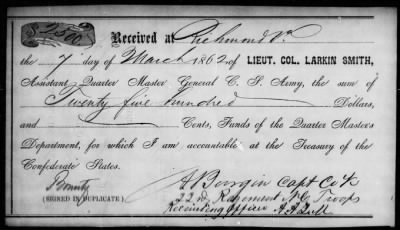 $2500
Received at Richmond Va.
the 7 day of March 1862 of LIEUT. COL. LARKIN SMITH,
Assistant Quarter Master General C. S. Army, the sum of
Twenty five hundred Dollars,
and Cents, Funds of the Quarter Master's
Department, for which I am accountable at the Treasury of the
Confederate States.
Bounty
(SIGNED IN DUPLICATE)
Capt Co K
22nd Regiment N.C. Troops
Recruiting Officer